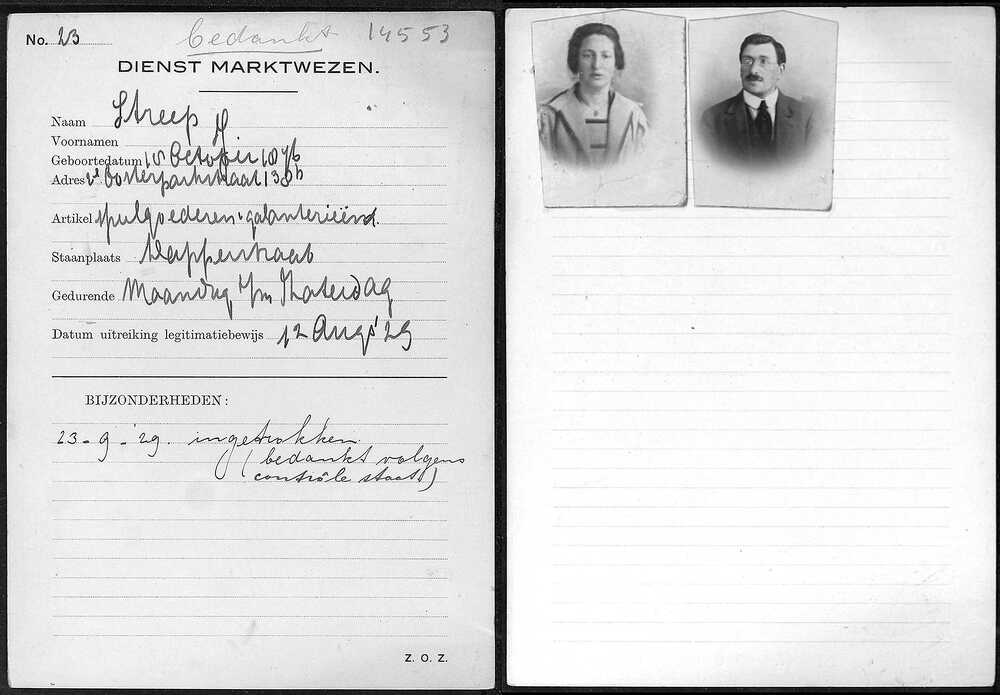 No. 23 bedankt 14553
DIENST MARKTWEZEN.
Naam Streep
Voornamen H
Geboortedatum 18 October 1876
Adres 2e Oosterparkstraat 138 h
Artikel spulgoederen galanterieënd.
Staanplaats Wapperstraat
Gedurende Maandag t/m Zaterdag
Datum uitreiking legitimatiebewijs 12 Aug' 29
BIJZONDERHEDEN:
23 - 9 - '29. ingetrokken
(bedankt volgens
contrôle staat)
Z. O. Z.